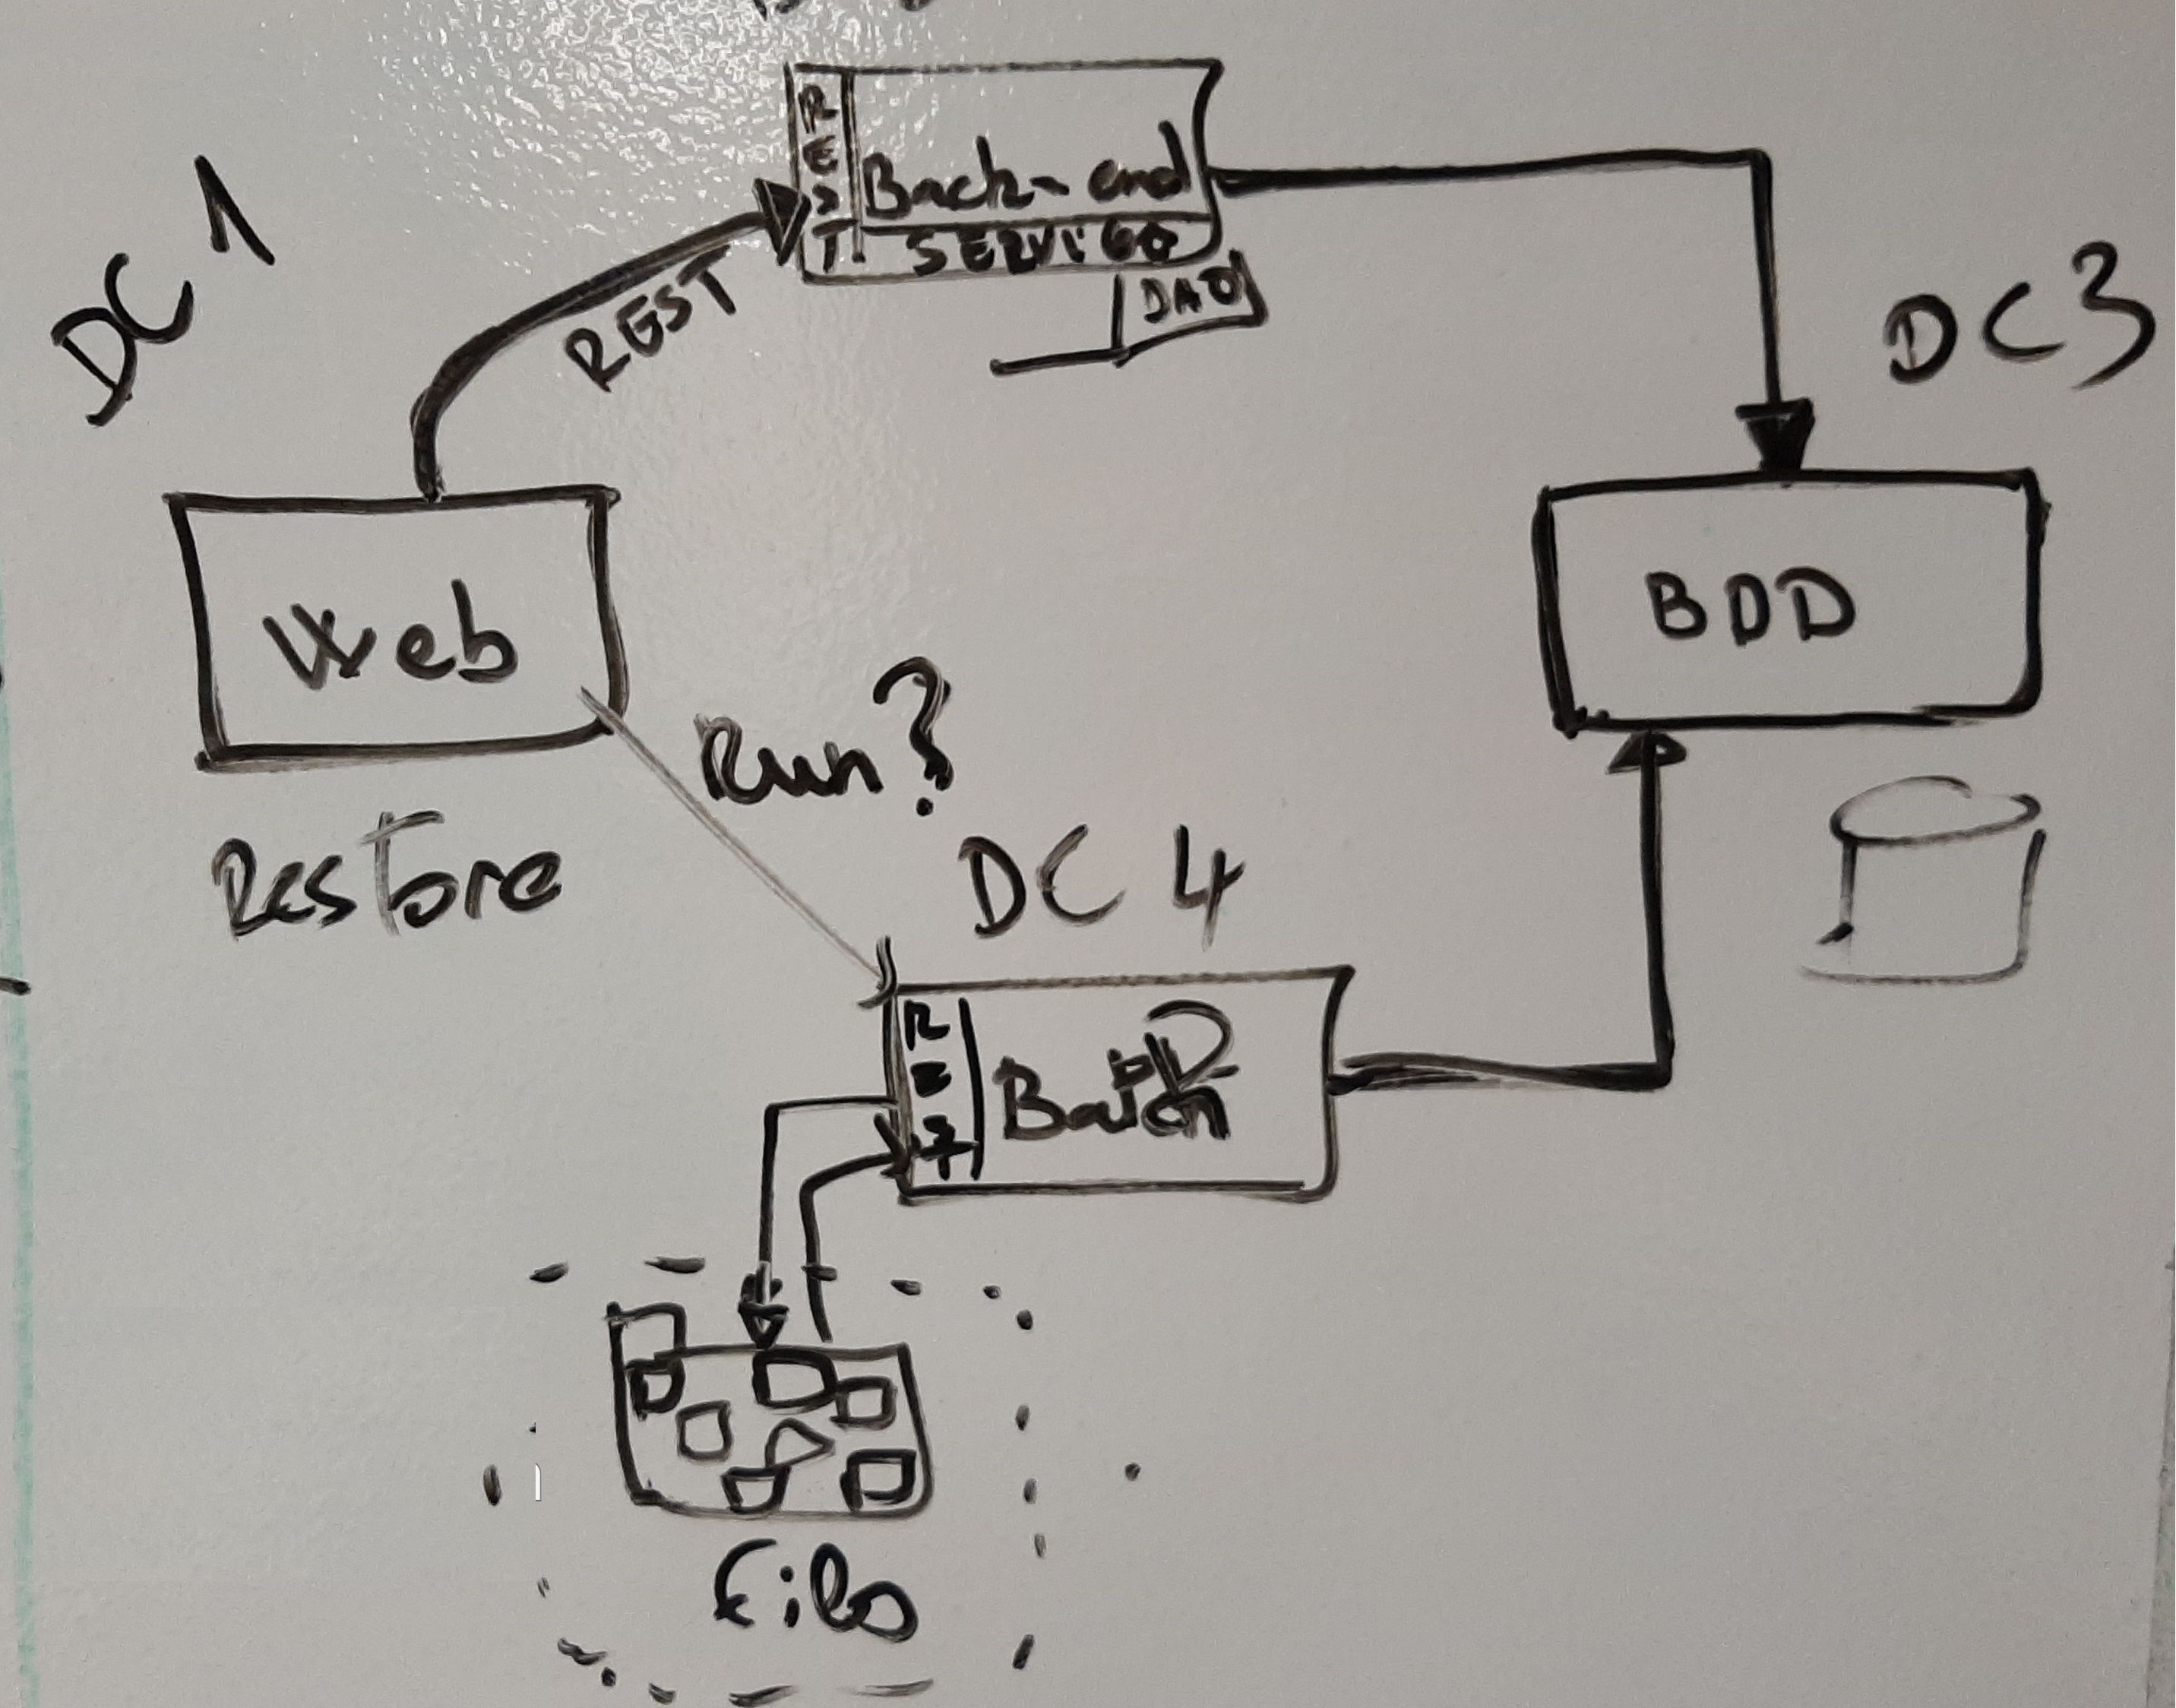 DC 1
REST
Back-end
SERVICE
DAO
REST
DC3
Web
BDD
Run?
Restore
DC 4
REST
Batch
Files